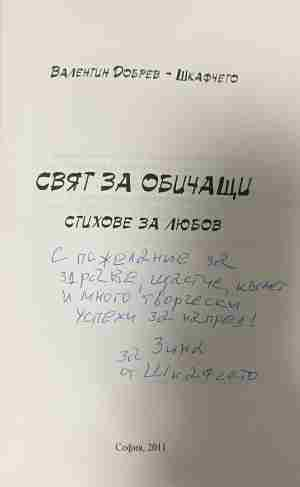 Валентин Добрев - Шкафчето
СВЯТ ЗА ОБИЧАЩИ
СТИХОВЕ ЗА ЛЮБОВ
С пожелание за
здраве, щастие, късмет
и много творчески
успехи за напред!
за Зина
от Шкафчето
София, 2011